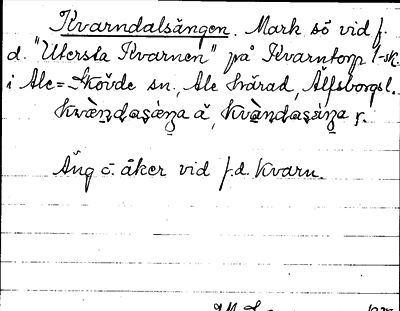 Kvarndalsängen. Mark sö vid f.
d. "Utersta Kvarnen" på Kvarntorp 1-sk.
i Ale-Skövde sn, Ale härad, Älfsborgs l.
Äng o. åker vid f.d. Kvarn.